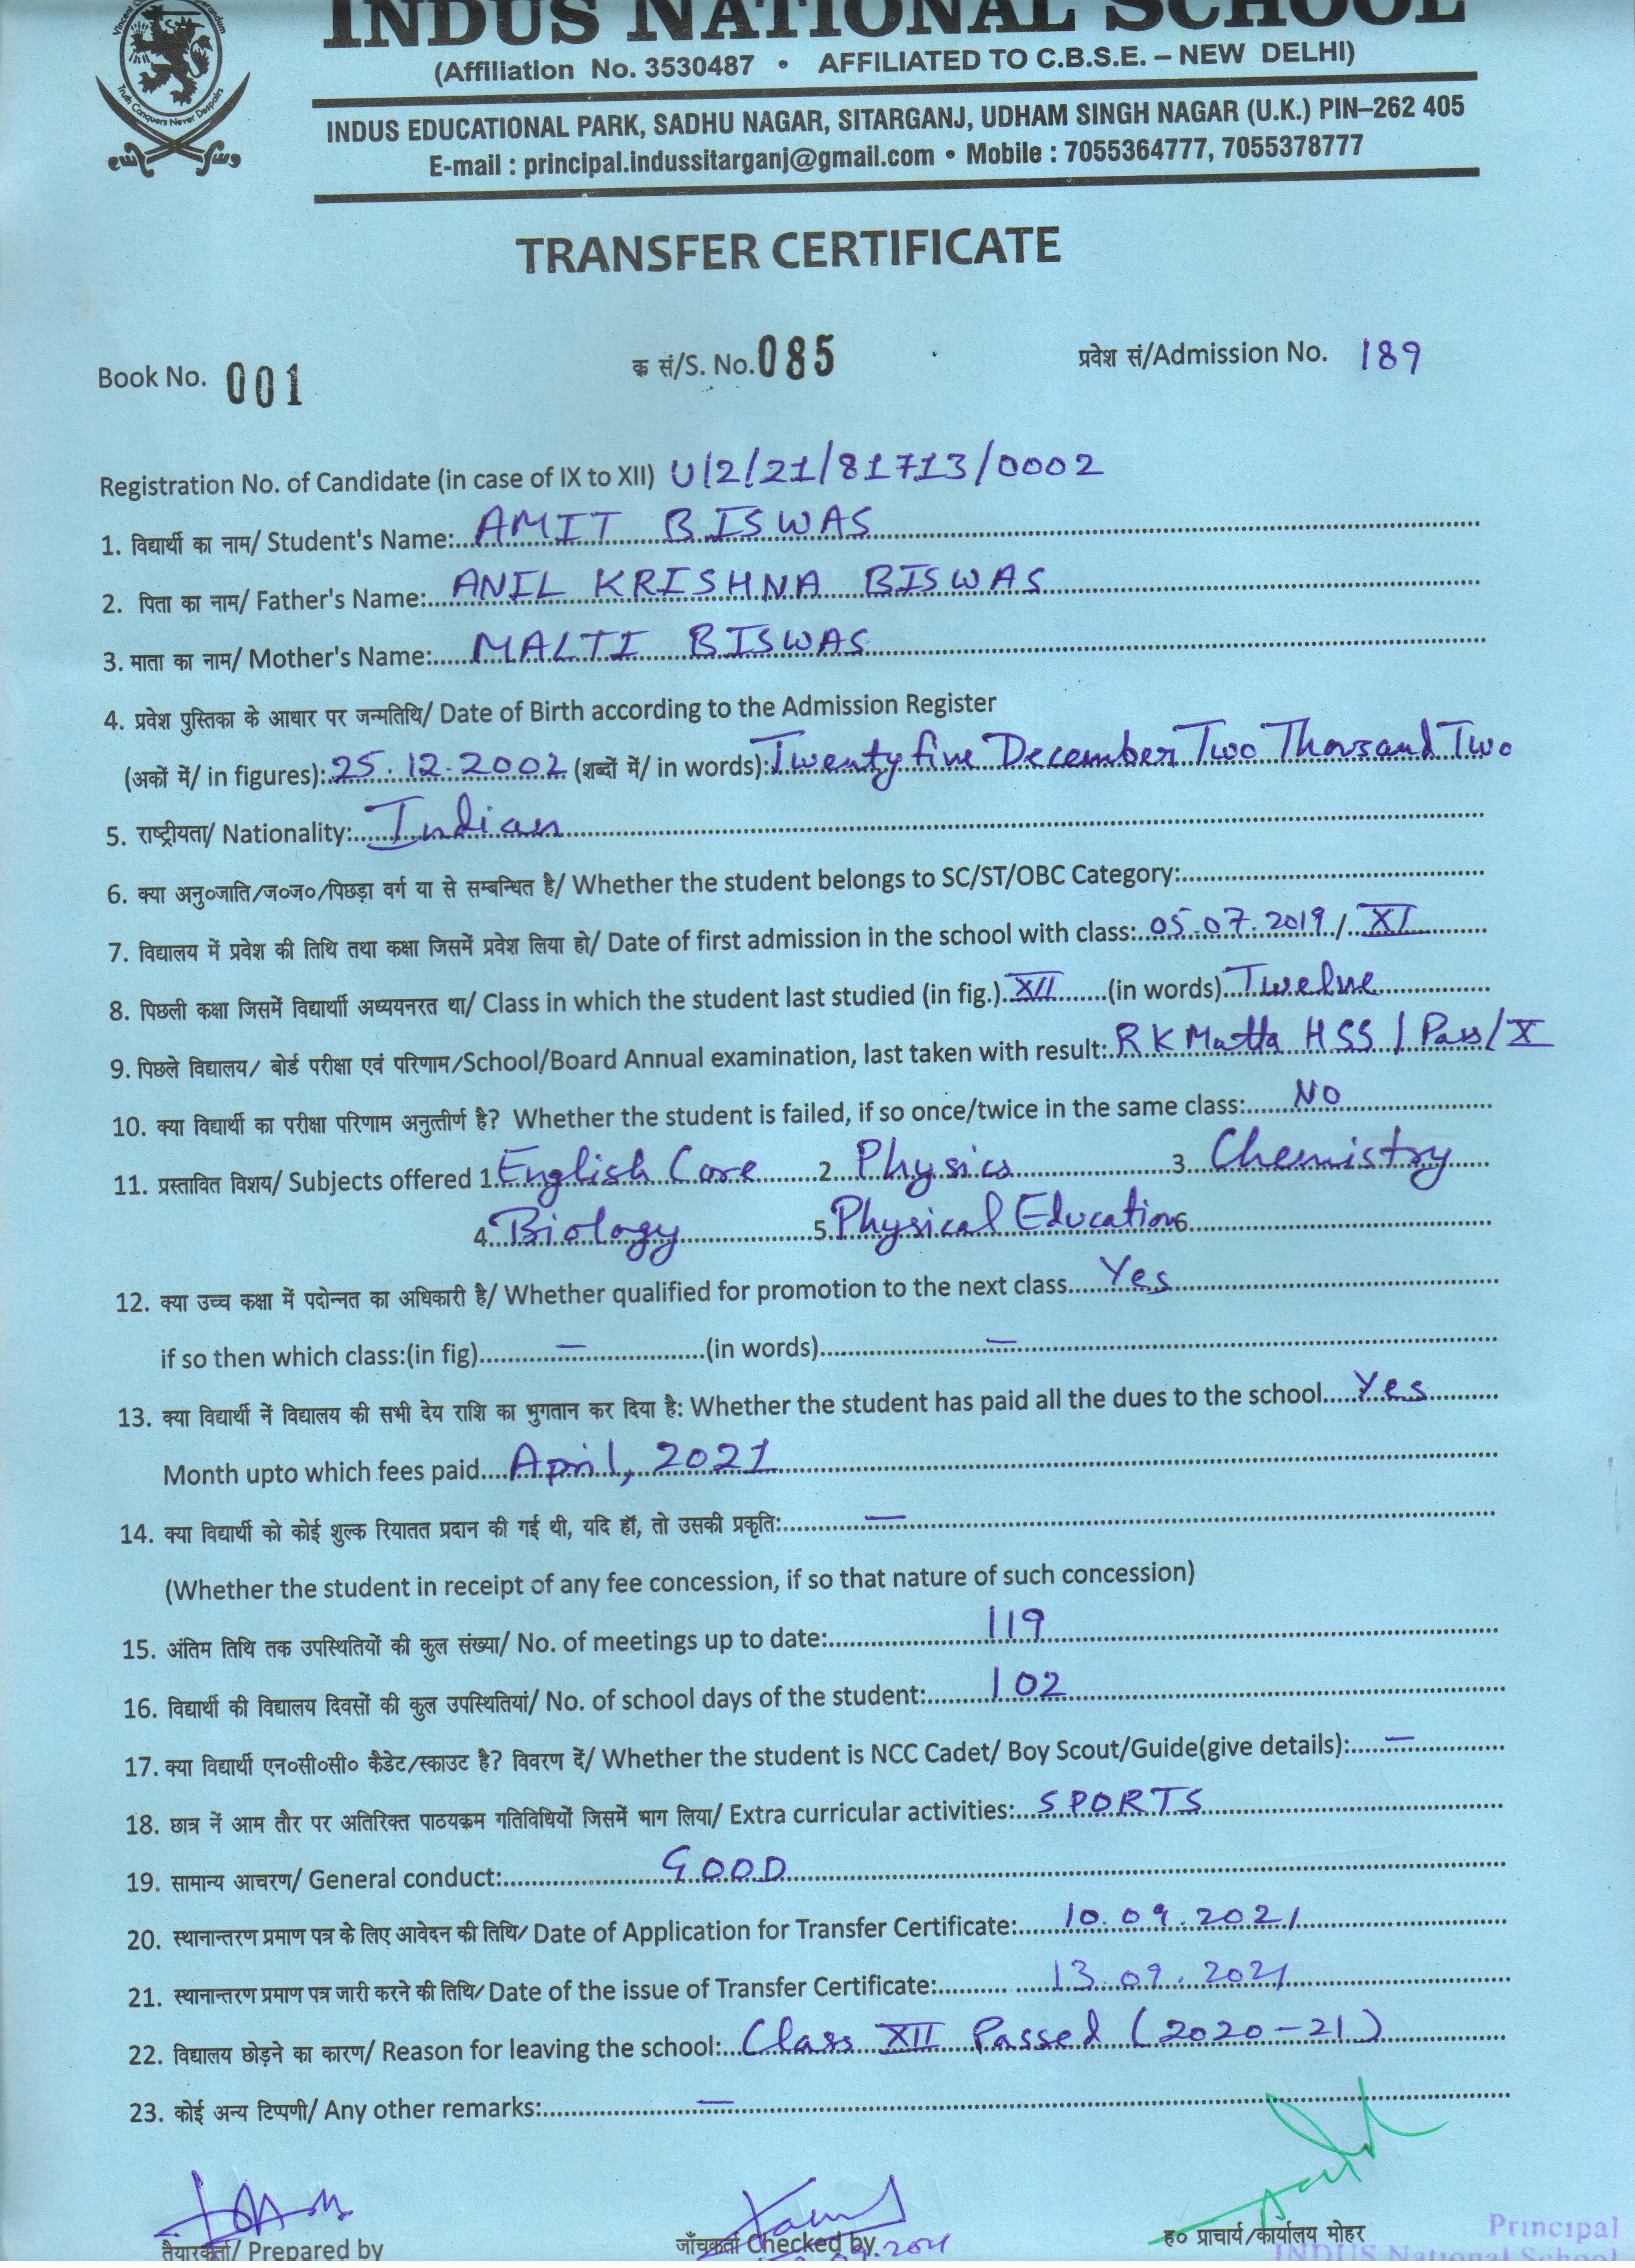 INDUS NATIONAL SCHOOL
(Affiliation No. 3530487 • AFFILIATED TO C.B.S.E. – NEW DELHI)
INDUS EDUCATIONAL PARK, SADHU NAGAR, SITARGANJ, UDHAM SINGH NAGAR (U.K.) PIN–262 405
E-mail : principal.indussitarganj@gmail.com • Mobile : 7055364777, 7055378777
Truth Conquers Never Despairs
TRANSFER CERTIFICATE
Book No. 001 क सं/S. No. 085 प्रवेश सं/Admission No. 189
Registration No. of Candidate (in case of IX to XII) U/2/21/81713/0002
1. विद्यार्थी का नाम/ Student's Name: AMIT BISWAS
2. पिता का नाम/ Father's Name: ANIL KRISHNA BISWAS
3. माता का नाम/ Mother's Name: MALTI BISWAS
4. प्रवेश पुस्तिका के आधार पर जन्मतिथि/ Date of Birth according to the Admission Register
(अकों में/ in figures): 25.12.2002 (शब्दों में/ in words): Twenty five December Two Thousand Two
5. राष्ट्रीयता/ Nationality: Indian
6. क्या अनु०जाति/ज०ज०/पिछड़ा वर्ग या से सम्बन्धित है/ Whether the student belongs to SC/ST/OBC Category:
7. विद्यालय में प्रवेश की तिथि तथा कक्षा जिसमें प्रवेश लिया हो/ Date of first admission in the school with class: 05.07.2019 / XI
8. पिछली कक्षा जिसमें विद्यार्थाी अध्ययनरत था/ Class in which the student last studied (in fig.) XII (in words) Twelve
9. पिछले विद्यालय/ बोर्ड परीक्षा एवं परिणाम/School/Board Annual examination, last taken with result: R K Matta HSS / Pass / X
10. क्या विद्यार्थी का परीक्षा परिणाम अनुत्तीर्ण है? Whether the student is failed, if so once/twice in the same class: NO
11. प्रस्तावित विशय/ Subjects offered 1. English Core 2. Physics 3. Chemistry
4. Biology 5. Physical Education 6.
12. क्या उच्च कक्षा में पदोन्नत का अधिकारी है/ Whether qualified for promotion to the next class Yes
if so then which class:(in fig) — (in words) —
13. क्या विद्यार्थी नें विद्यालय की सभी देय राशि का भुगतान कर दिया है: Whether the student has paid all the dues to the school Yes
Month upto which fees paid April, 2021
14. क्या विद्यार्थी को कोई शुल्क रियातत प्रदान की गई थी, यदि हॉ, तो उसकी प्रकृति: —
(Whether the student in receipt of any fee concession, if so that nature of such concession)
15. अंतिम तिथि तक उपस्थितियों की कुल संख्या/ No. of meetings up to date: 119
16. विद्यार्थी की विद्यालय दिवसों की कुल उपस्थितियां/ No. of school days of the student: 102
17. क्या विद्यार्थी एन०सी०सी० कैडेट/स्काउट है? विवरण दें/ Whether the student is NCC Cadet/ Boy Scout/Guide(give details): —
18. छात्र नें आम तौर पर अतिरिक्त पाठयक्रम गतिविधियों जिसमें भाग लिया/ Extra curricular activities: SPORTS
19. सामान्य आचरण/ General conduct: GOOD
20. स्थानान्तरण प्रमाण पत्र के लिए आवेदन की तिथि/ Date of Application for Transfer Certificate: 10.09.2021
21. स्थानान्तरण प्रमाण पत्र जारी करने की तिथि/ Date of the issue of Transfer Certificate: 13.09.2021
22. विद्यालय छोड़ने का कारण/ Reason for leaving the school: Class XII Passed (2020-21)
23. कोई अन्य टिप्पणी/ Any other remarks: —
तैयारकर्ता/ Prepared by जाँचकर्ता Checked by ह० प्राचार्य/कार्यालय मोहर
Principal
INDUS National School